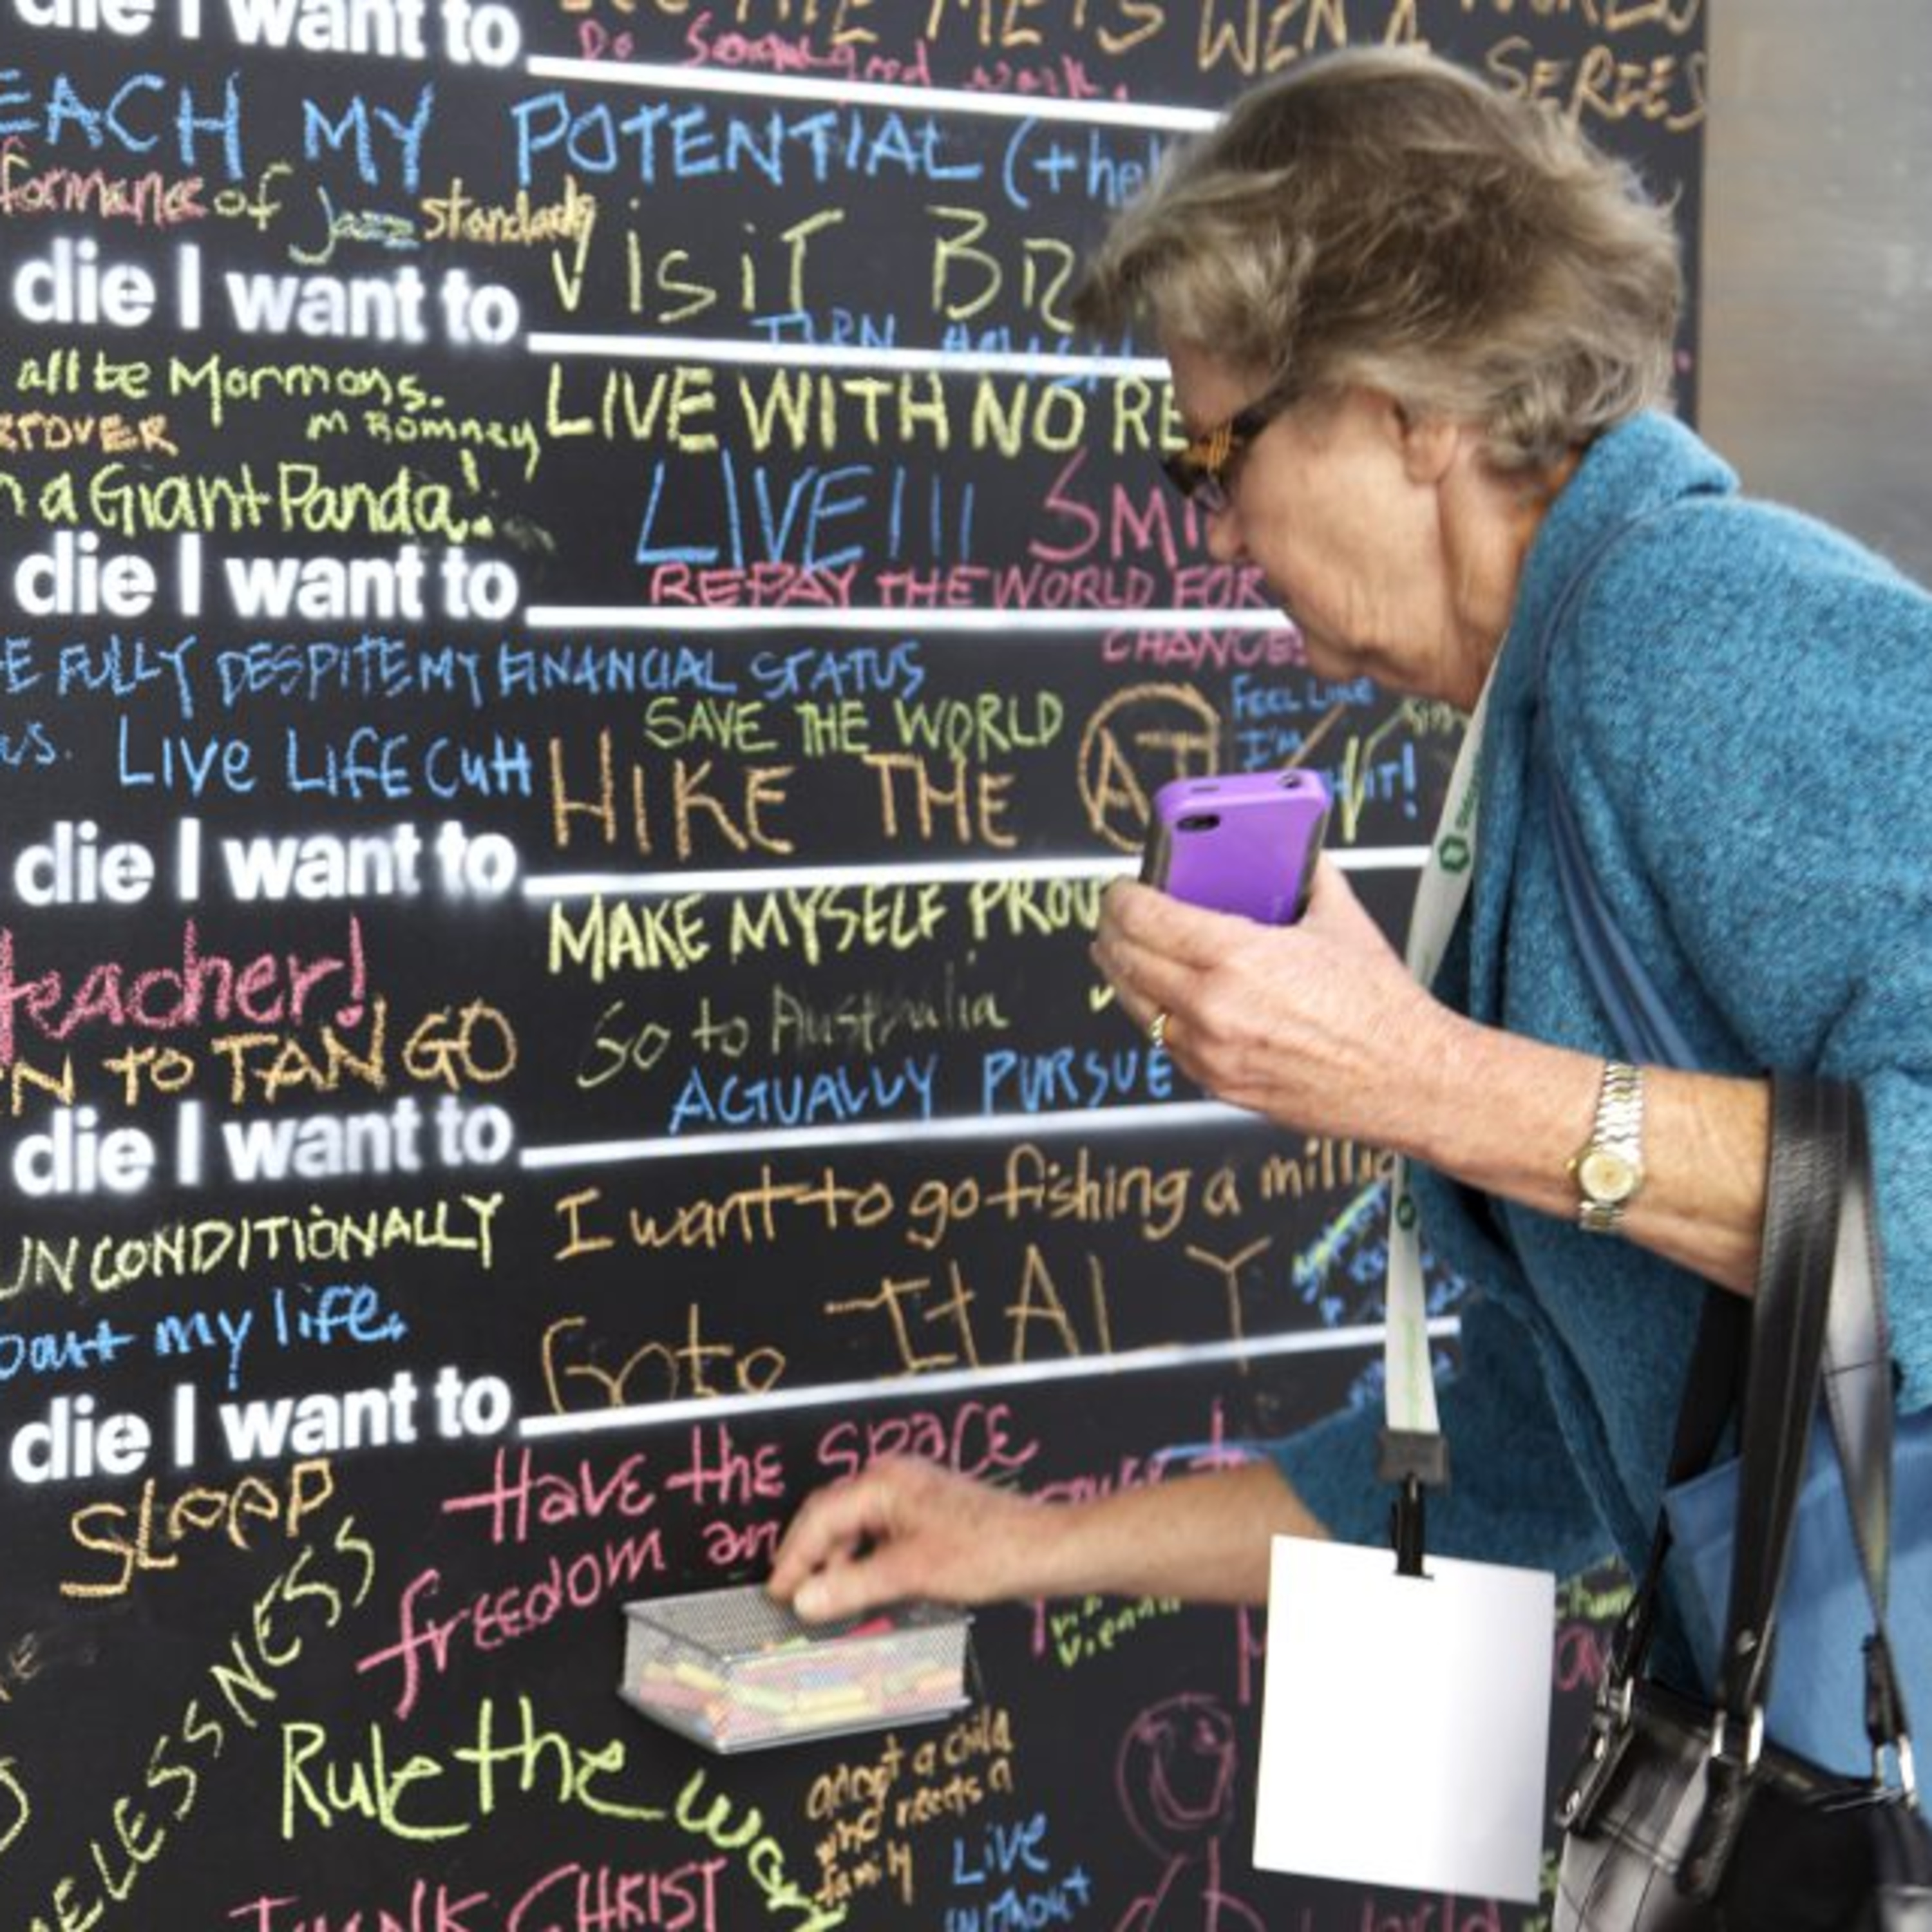 die I want to SEE THE METS WIN A WORLD SERIES
Do Some good work.
EACH MY POTENTIAL (+ hel
formance of Jazz standards
die I want to Visit BR
TURN
all be Mormons.
M Romney
LIVE WITH NO RE
n a Giant Panda!
LIVE!!! SMI
die I want to
REPAY THE WORLD FOR
CHANCES
E FULLY DESPITE MY FINANCIAL STATUS
SAVE THE WORLD
FEEL LIKE
I'M
IT!
us. Live LIFE
HIKE THE AT
die I want to
MAKE MYSELF PROU
teacher!
Go to Australia
N TO TANGO
ACTUALLY PURSUE
die I want to
I want to go fishing a millio
UNCONDITIONALLY
Go to ITALY
my life.
die I want to
Have the space
SLEEP
freedom an
Vienna
ELESSNESS
Rule the World
adopt a child
who needs a
family
Live
without
THANK CHRIST
world